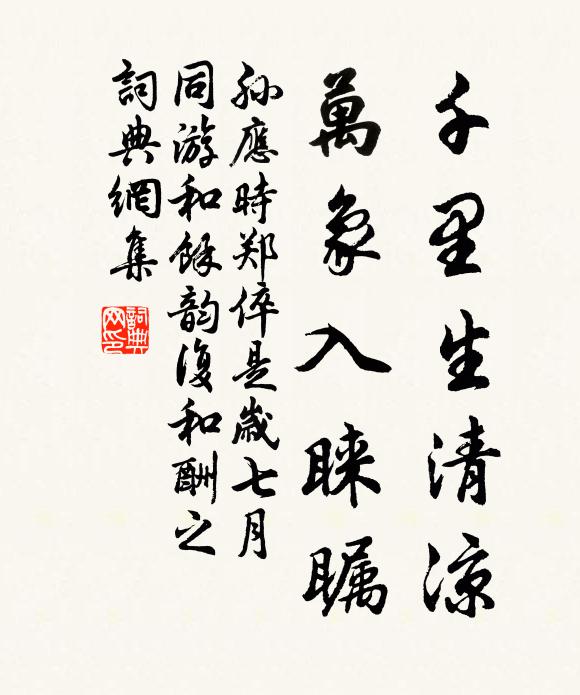 千里生清凉
萬象入睐瞩
孙應時郑倅是歲七月
同游和餘韵復和酬之
詞典網集
詞典网印